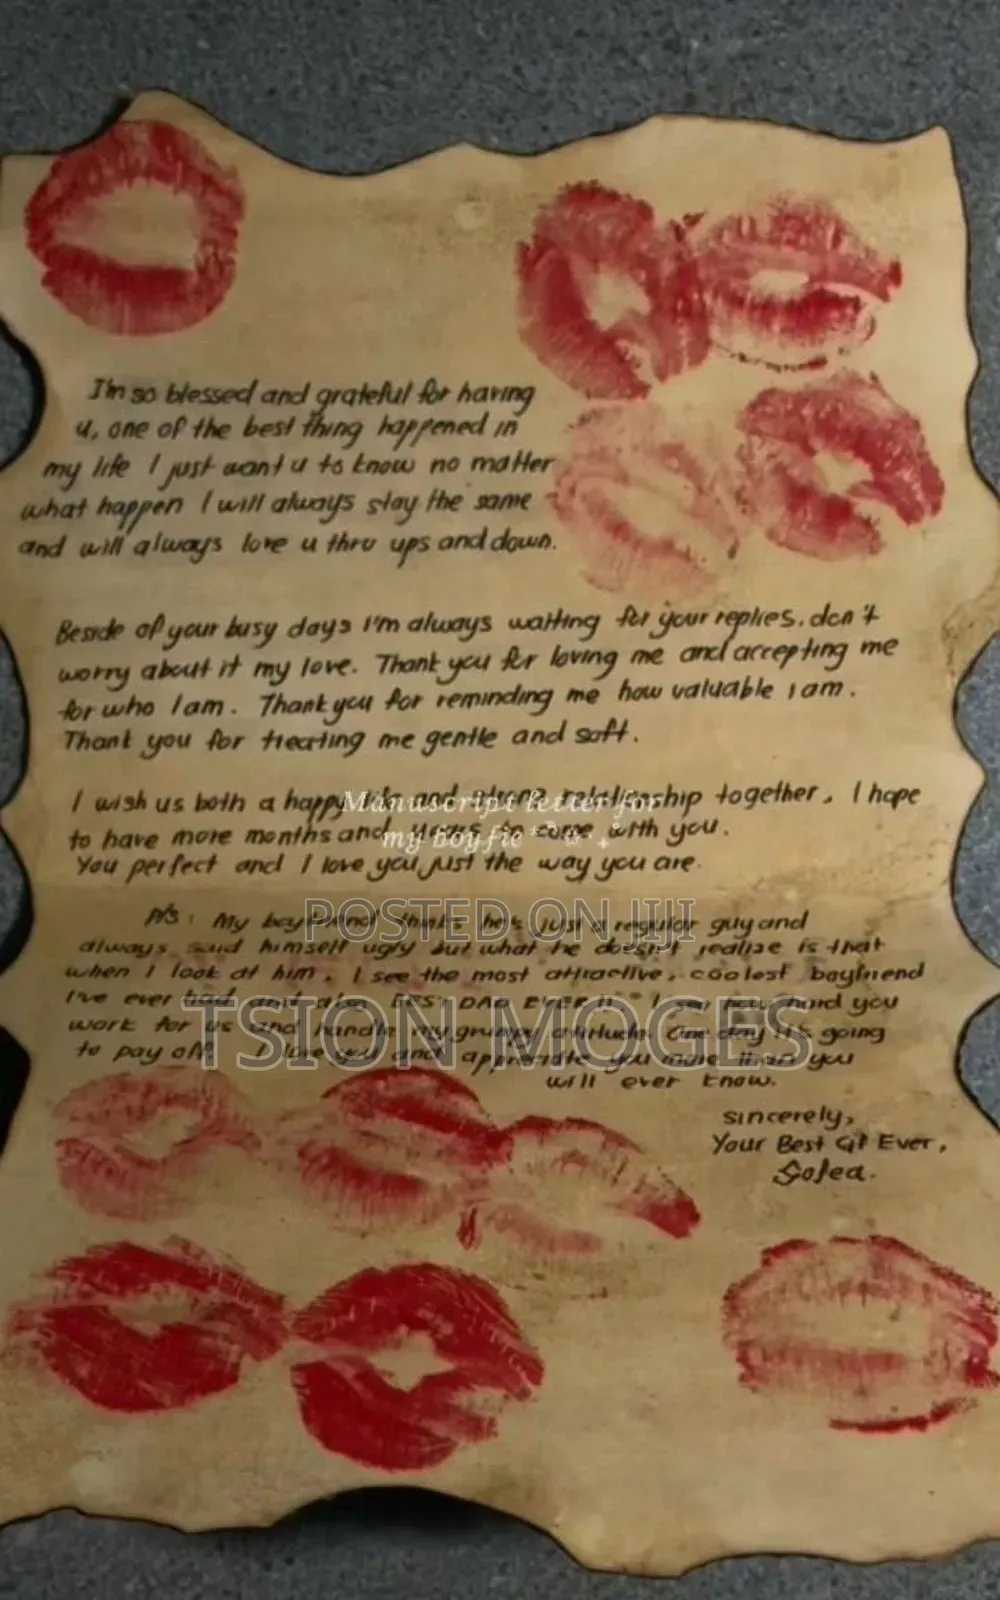 I'm so blessed and grateful for having
u, one of the best thing happened in
my life I just want u to know no matter
what happen I will always stay the same
and will always love u thru ups and down.
Beside of your busy days I'm always waiting for your replies. don't
worry about it my love. Thank you for loving me and accepting me
for who I am. Thank you for reminding me how valuable I am.
Thank you for treating me gentle and soft.
I wish us both a happy life and strong relationship together, I hope
Manuscript letter for
to have more months and years to come with you.
my boyfie
You perfect and I love you just the way you are.
P/S: My boyfriend thinks he's just a regular guy and
POSTED ON JIJI
always said himself ugly but what he doesn't realize is that
when I look at him, I see the most attractive, coolest boyfriend
I've ever had and also BEST DAD EVER!! I see how hard you
TSION MOGES
work for us and handle my grumpy attitude. One day it's going
to pay off. I love you and appreciate you more than you
will ever know.
sincerely,
Your Best Gf Ever,
Sofea.